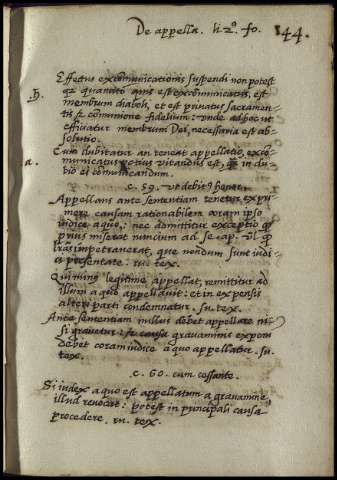 De appella. li. 2º. fo. 144.
Effectus excomunicationis suspendi non potest
qz quanto quis est excomunicatus, est
membrum diaboli, et est privatus sacramen-
tis et comunione fidelium: unde ad hoc ut
efficiatur membrum Dei, necessaria est ab-
solutio.
Cum dubitatur an teneat appellatio, exco-
municatus potius vitandus est, in du-
bio ei comunicandum.
a.
c. 59. ut debitus honor.
Appellans ante sententiam tenetur expri-
mere causam rationabilem coram ipso
iudice a quo: nec admittitur exceptio
prius miserat nuncium ad se ap.
impetraverat, que nondum sunt iudi-
ci presentate: tex.
Qui minus legitime appellat, remittitur ad
illum a quo appellavit: et in expensis
alteri parti condemnatur. tex.
Ante sententiam nullus debet appellare ni-
si gravetur: et causa gravaminis exponi
debet coram iudice a quo appellatur.
tex.
c. 60. cum cessante.
Si iudex a quo est appellatum a gravamine,
illud revocat: potest in principali causa
procedere. tex.